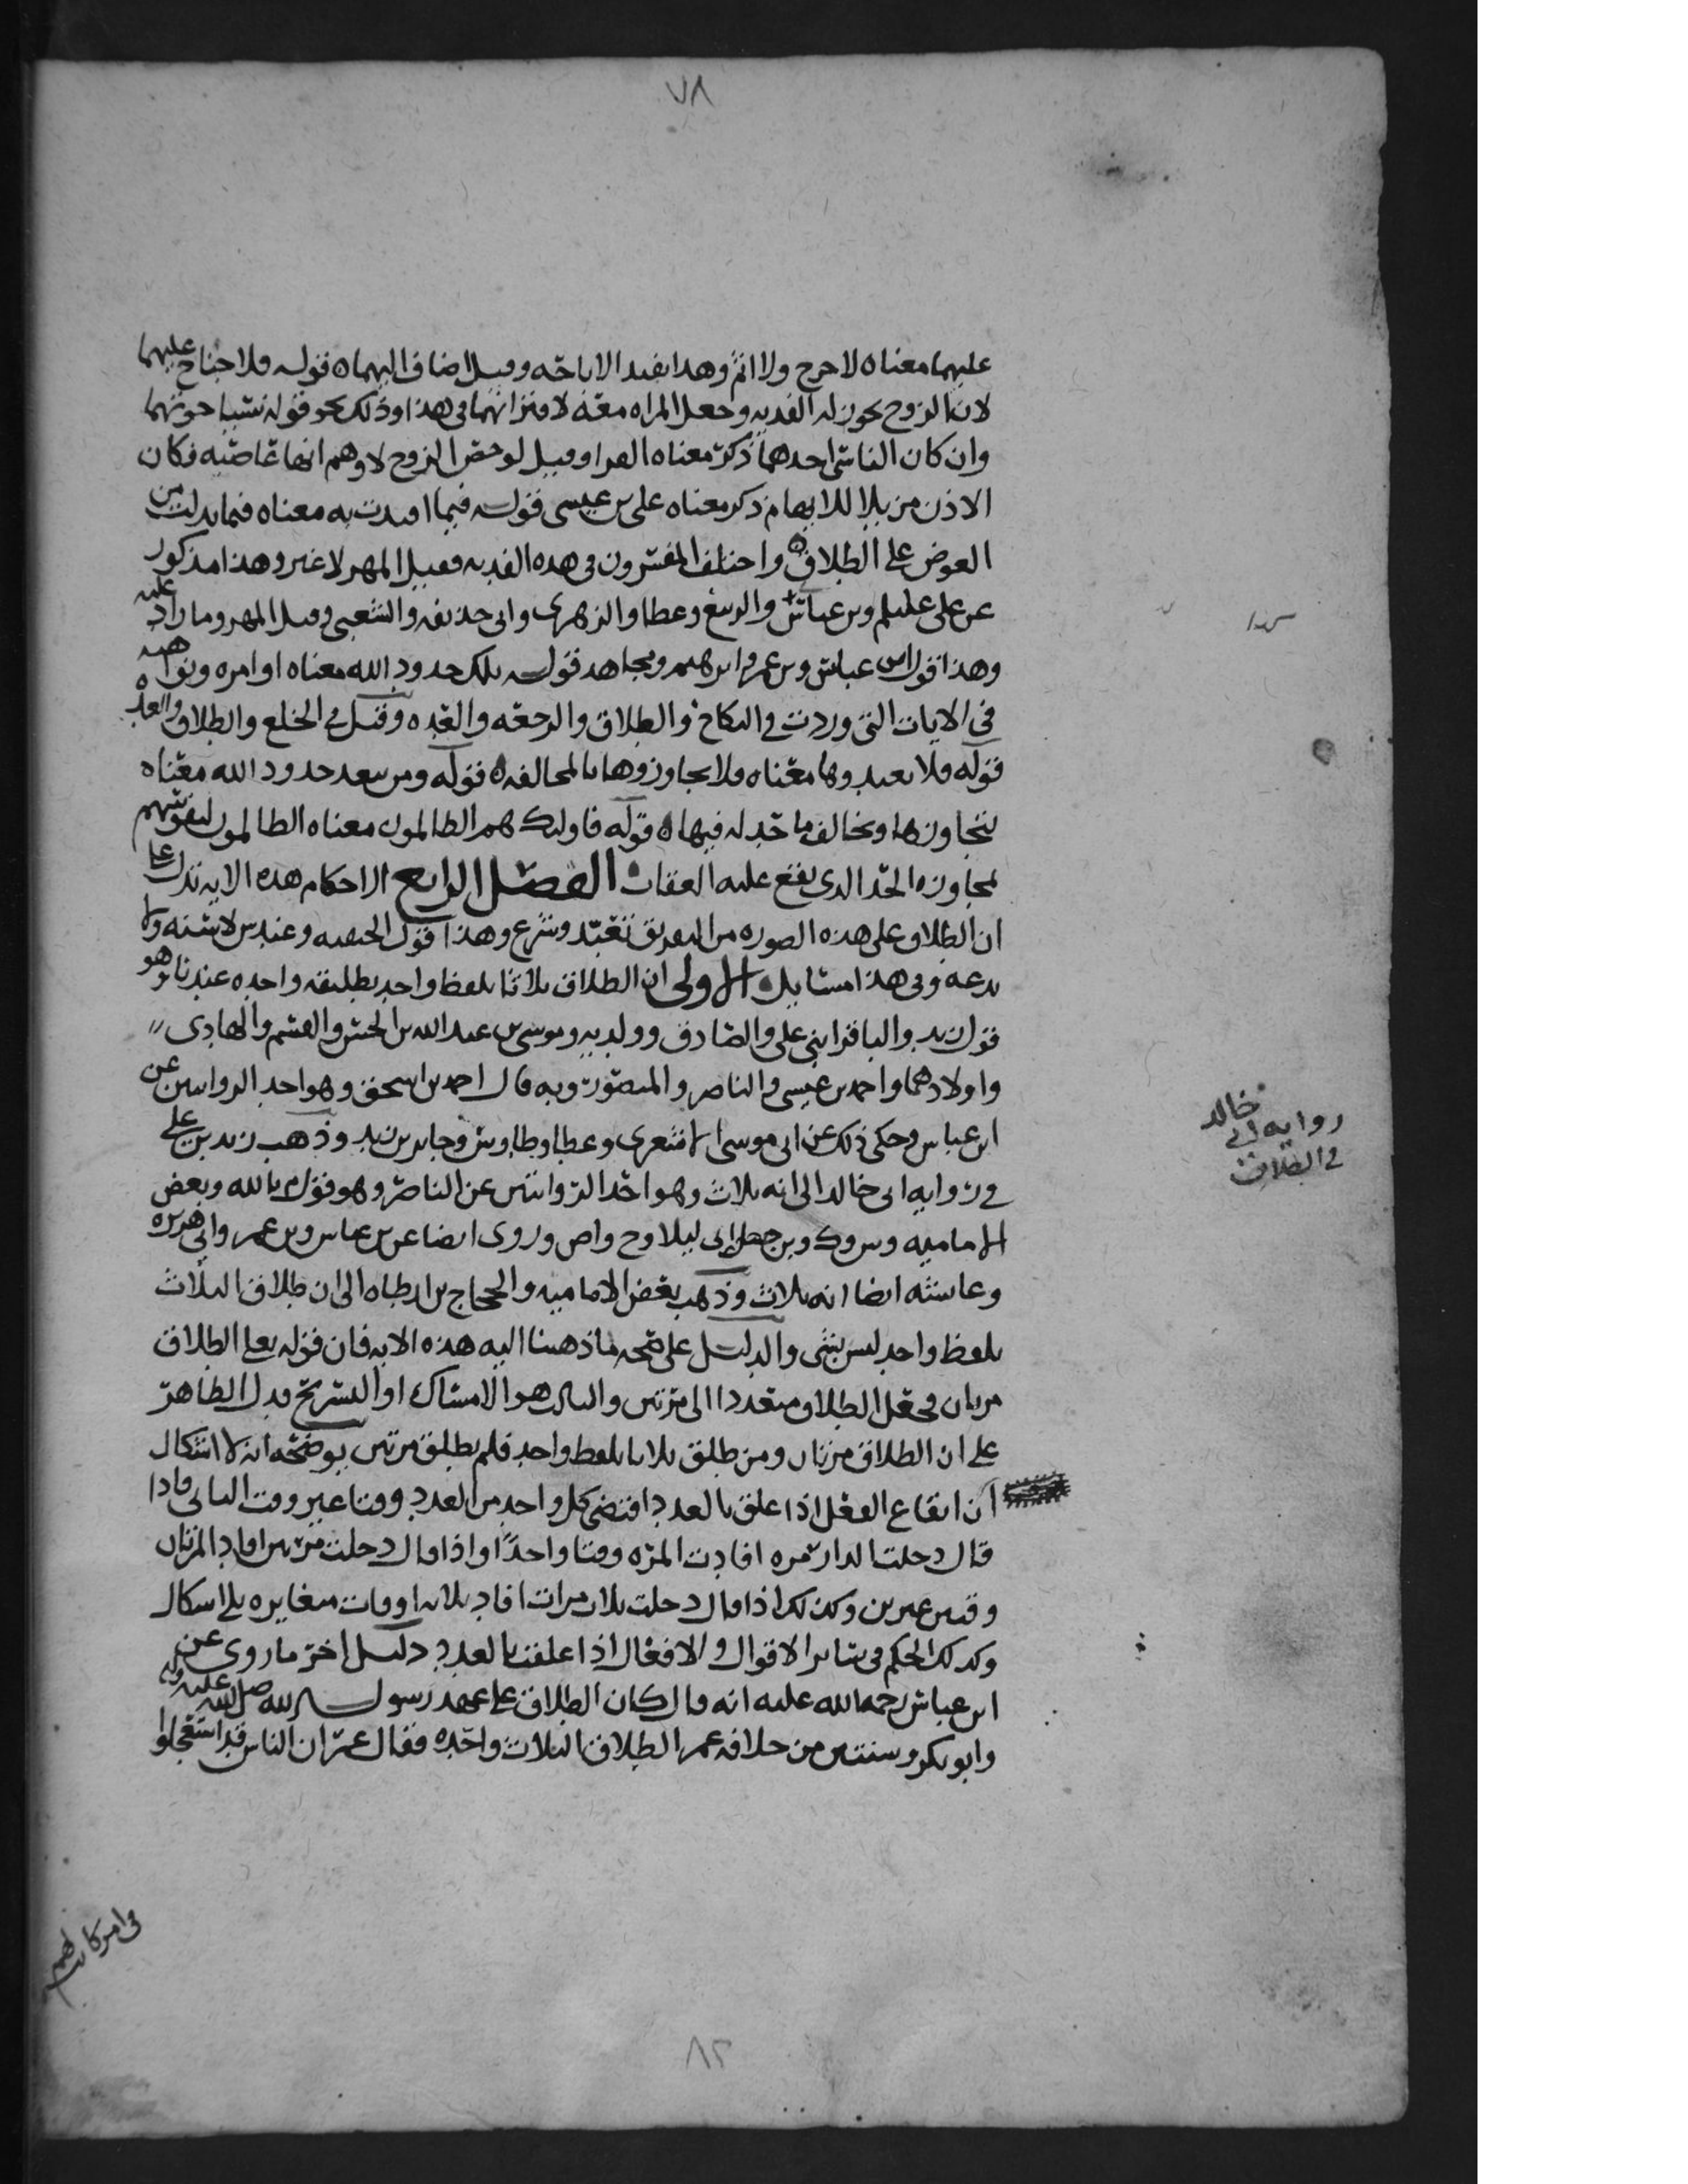 ٧٨
عليهما معناه لا حرج ولا اثم وهذا يفيد الاباحه وقيل اضاف اليهما ه قوله فلا جناح عليهما
لان الزوج يجوز له الفديه وجعل المراه معه لاقترانهما في هذا وذلك نحو قوله نسيا حوتهما
وان كان الناسي احدهما ذكر معناه الفرا وقيل لو خص الزوج لاوهم انها عاصيه فكان
الاذن مزيلا للايهام ذكر معناه علي بن عيسى قوله فيما افتدت به معناه فيما بذلت من
العوض على الطلاق ه واختلف المفسرون في هذه الفديه فقيل المهر لا غير وهذا مذكور
عن علي عليلم وبن عباس والربيع وعطا والزهري وابي حذيفه والشعبي وقيل المهر وما زاد عليه
وهذا قول ابن عباس وبن عمر وابرهيم ومجاهد قوله تلك حدود الله معناه اوامره ونواهيه
في الايات التي وردت في النكاح والطلاق والرجعه والعده وقيل في الخلع والطلاق والعده
قوله فلا تعتدوها معناه فلا تجاوزوها بالمخالفه ه قوله ومن يتعد حدود الله معناه
يتجاوزها ويخالف ما حد له فيها ه قوله فاوليك هم الظالمون معناه الظالمون لنفوسهم
لمجاوزه الحد الذي يقع عليه العقاب ه الفصل الرابع الاحكام هذه الايه تدل على
ان الطلاق على هذه الصوره من التفريق تعبد وشرع وهذا قول الحنفيه وعند ش لا سنه ولا
بدعه وفي هذا مسايل ه الاولى ان الطلاق ثلاثا بلفظ واحد تطليقه واحده عندنا وهو
قول زيد والباقر ابني علي والصادق وولديه وموسى بن عبد الله بن الحسن والقسم والهادي
واولادهما واحمد بن عيسى والناصر والمنصور وبه قال احمد بن اسحق وهو احد الروايتين عن
ابن عباس وحكي ذلك عن ابي موسى الاشعري وعطا وطاوس وجابر بن زيد وذهب زيد بن علي
في روايه ابي خالد الى انه ثلاث وهو احد الروايتين عن الناصر وهو قول م بالله وبعض
الاماميه وش وك وبن ابي ليلا وح واص وروي ايضا عن بن عباس وبن عمر وابي هريره
وعايشه ايضا انه ثلاث وذهب بعض الاماميه والحجاج بن ارطاه الى ان طلاق الثلاث
بلفظ واحد ليس بشي والدليل على صحه ما ذهبنا اليه هذه الايه فان قوله تعلى الطلاق
مرتان فجعل الطلاق متعددا الى مرتين والثالث هو الامساك او التسريح فدل الظاهر
على ان الطلاق مرتان ومن طلق ثلاثا بلفظ واحد فلم يطلق مرتين يوضحه انه لا اشكال
ان ايقاع الفعل اذا علق بالعدد اقتضى كل واحد من العدد وقتا غير وقت الثاني فاذا
قال دخلت الدار مره افادت المره وقتا واحدا واذا قال دخلت مرتين افاد المرتان
وقتين غيرين وكذلك اذا قال دخلت ثلاث مرات افاد ثلاثه اوقات متغايره بلا اشكال
وكذلك الحكم في ساير الاقوال والافعال اذا علقت بالعدد دليل اخر ما روي عن
ابن عباس رحمه الله عليه انه قال كان الطلاق على عهد رسول الله صلى الله عليه واله
وابو بكر وسنتين من خلافه عمر الطلاق الثلاث واحده فقال عمر ان الناس قد استعجلوا
روايه ابي خالد
في الطلاق
في امر كانت لهم
٨٢